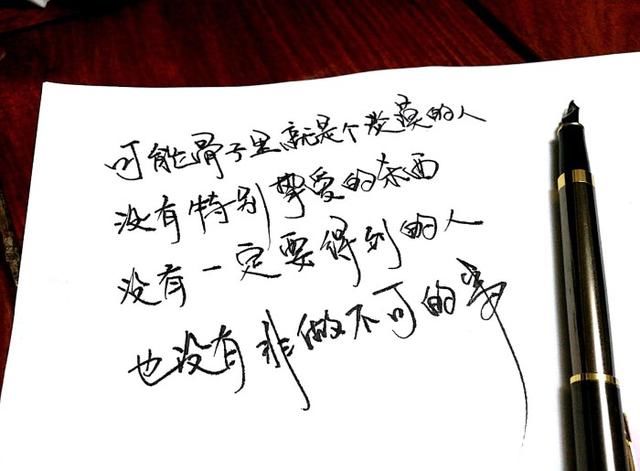 可能骨子里就是个淡漠的人
没有特别挚爱的东西
没有一定要得到的人
也没有非做不可的事